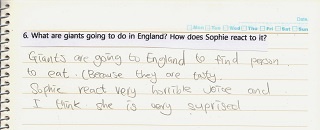 Date
6. What are giants going to do in England? How does Sophie react to it?
Giants are going to England to find person
to eat. (Because they are tasty.
Sophie react very horrible voice and
I think she is very suprised